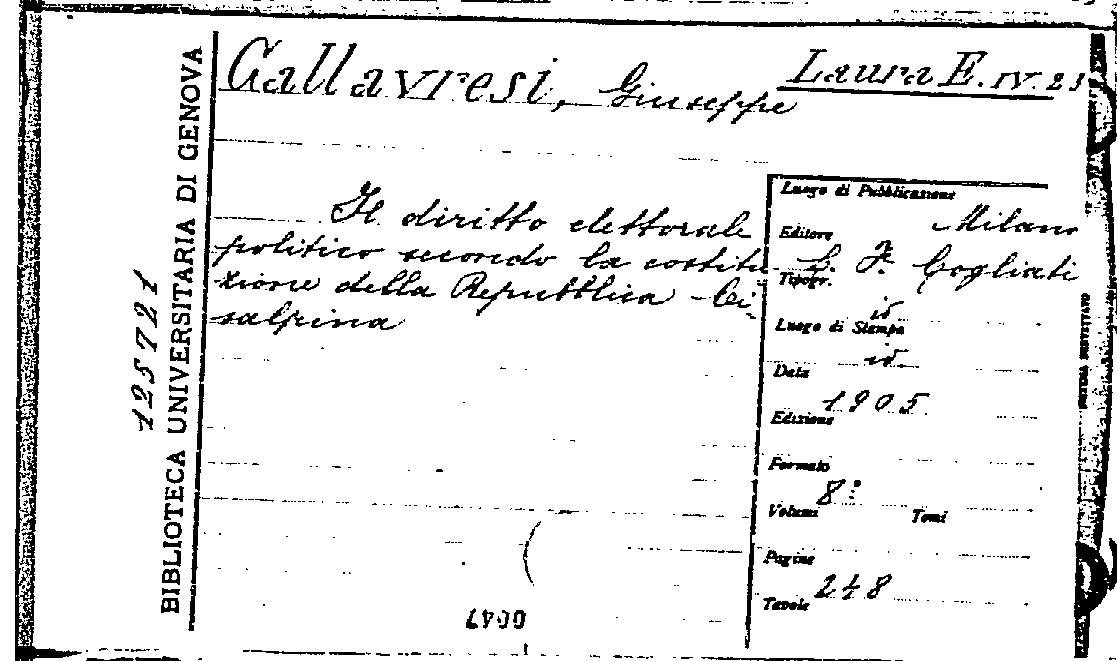 Gallavresi, Giuseppe
Laura E. IV. 23
Il diritto elettorale
politico secondo la costitu
zione della Repubblica Ci-
salpina
Luogo di Pubblicazione
Milano
Editore
L. F. Cogliati
Tipogr.
id.
Luogo di Stampa
id.
Data
1905
Edizione
Formato
8º
Volumi
Tomi
Pagine
248
Tavole
BIBLIOTECA UNIVERSITARIA DI GENOVA
125721
0047